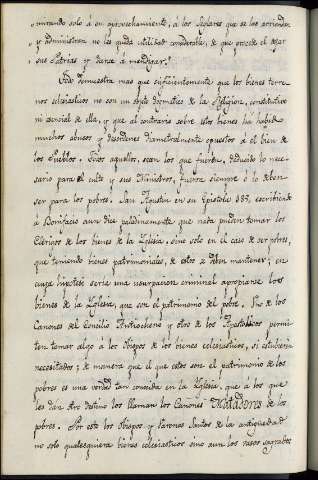 mirando solo á su aprovechamiento, á los seglares que se los arriendan
y administran no les queda utilidad considerable, de que procede el dejar
sus Patrias y darse á mendigar.
Todo demuestra mas que suficientemente que los bienes terre
nos eclesiasticos no son un objeto dogmatico de la Religion, constitutivo
ni esencial de ella, y que al contrario sobre estos bienes ha habido
muchos abusos y desordenes diametralmente opuestos á el bien de
los Pueblos. Todos aquellos, sean los que fueren, deducido lo nece-
sario para el culto y sus Ministros, fueron siempre ó lo deben
ser para los pobres. San Agustin en su Epistola 185, escribiendo
á Bonifacio aun dice paladinamente que nada pueden tomar los
Clerigos de los bienes de la Iglesia sino solo en el caso de ser pobres,
que teniendo bienes patrimoniales, de estos se deben mantener; en
cuya hipotesi seria una usurpacion criminal apropiarse los
bienes de la Iglesia, que son el patrimonio del pobre. Uno de los
Canones del Concilio Antiocheno y otro de los Apostolicos permi-
ten tomar algo á los Obispos de los bienes eclesiasticos, si estubieren
necesitados; de manera que el que estos son el patrimonio de los
pobres es una verdad tan conocida en la Iglesia, que á los que
les dan otro destino los llaman los Canones Matadores de los
pobres. Por esto los Obispos y Varones Santos de la antigüedad
no solo qualesquiera bienes eclesiasticos sino aun los vasos sagrados